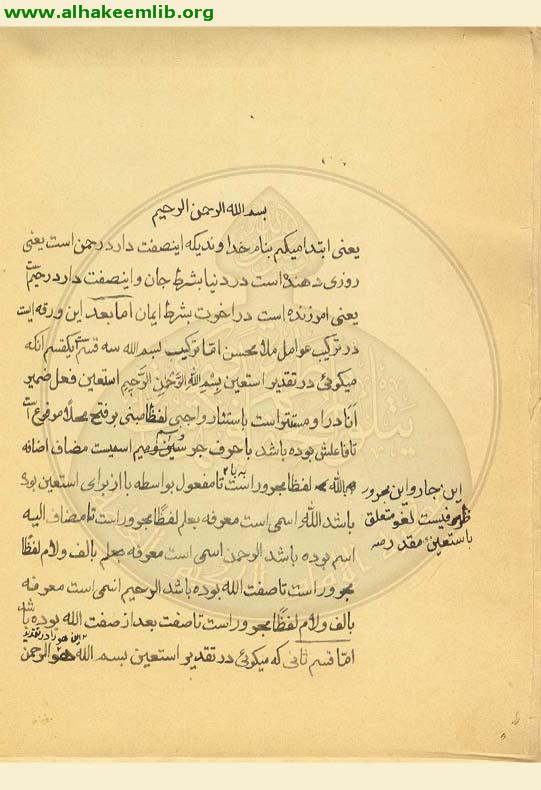 www.alhakeemlib.org
بسم الله الرحمن الرحیم
یعنی ابتدا میکنم بنام خداوندیکه اینصفت دارد رحمن است یعنی
روزی دهنده است در دنیا بشرط جان و اینصفت دارد رحیم است
یعنی امورزنده است در اخرت بشرط ایمان اما بعد این ورقه ایست
در ترکیب عوامل ملا محسن امّا ترکیب بسم الله سه قسم است یکقسم آنکه
میکوئی در تقدیر استعین بِسْمِ اللهِ الرَّحْمٰنِ الرَّحِیمِ استعین فعل ضمیر
أنَا در او مستتر است باستتار واجبی لفظًا مبنی بر فتح محلًا مرفوع است
تا فاعلش بوده باشد با حرف جر سین و میم اسمیست مضاف اضافه
بالله لفظا مجرور است به با تا مفعول بواسطه با از برای استعین بوده
باشد اللّٰه اسمی است معرفه بعلم لفظًا مجرور است تا مضاف الیه
اسم بوده باشد الرحمن اسمی است معرفه بعلم بالف ولام لفظًا
مجرور است تا صفت الله بوده باشد الرحیم اسمی است معرفه
بالف ولام لفظًا مجرور است تا صفت بعد از صفت الله بوده باشد
امّا قسم ثانی که میکوئی در تقدیر استعین بسم الله هو الرحمن
این هو را در تقدیر
این جار و این مجرور
ظرفیست لغو متعلق
باستعین مقدر